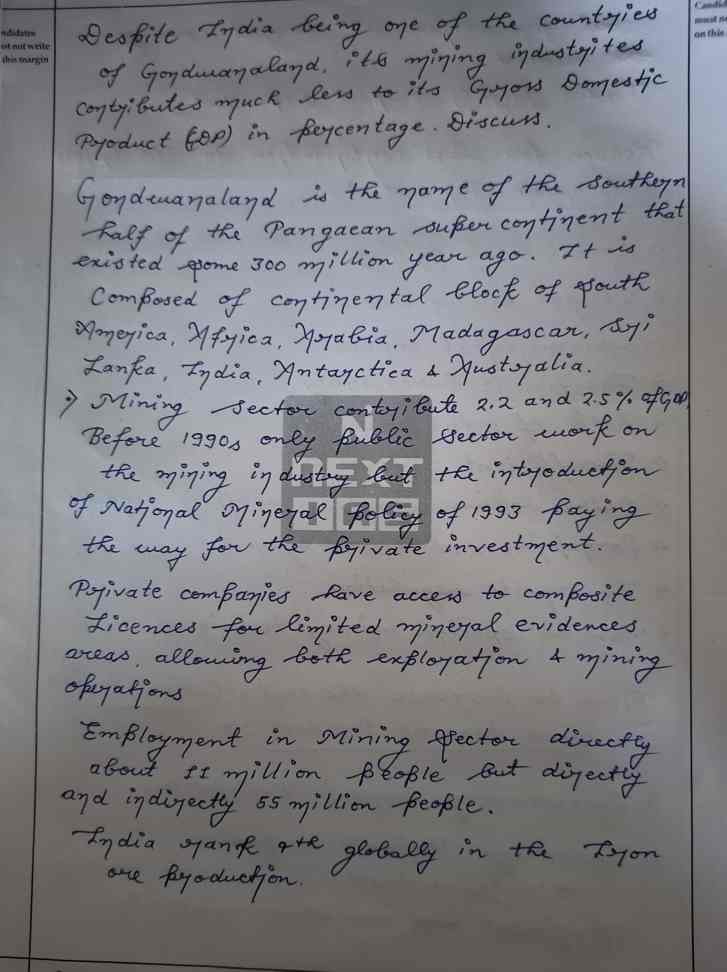 Candid
must no
on this
ndidates
ot not write
this margin
Despite India being one of the countries
of Gondwanaland, its mining industries
contributes much less to its Gross Domestic
Product (GDP) in percentage. Discuss.
Gondwanaland is the name of the southern
half of the Pangaean super continent that
existed some 300 million year ago. It is
Composed of continental block of South
America, Africa, Arabia, Madagascar, Sri
Lanka, India, Antarctica & Australia.
Mining sector contribute 2.2 and 2.5% of GDP
Before 1990s only public sector work on
the mining industry but the introduction
of National Mineral policy of 1993 paying
the way for the private investment.
NEXT
IAS
Private companies have access to composite
Licences for limited mineral evidences
areas, allowing both exploration & mining
operations
Employment in Mining Sector directly
about 11 million people but directly
and indirectly 55 million people.
India rank 4th globally in the Iron
ore production.